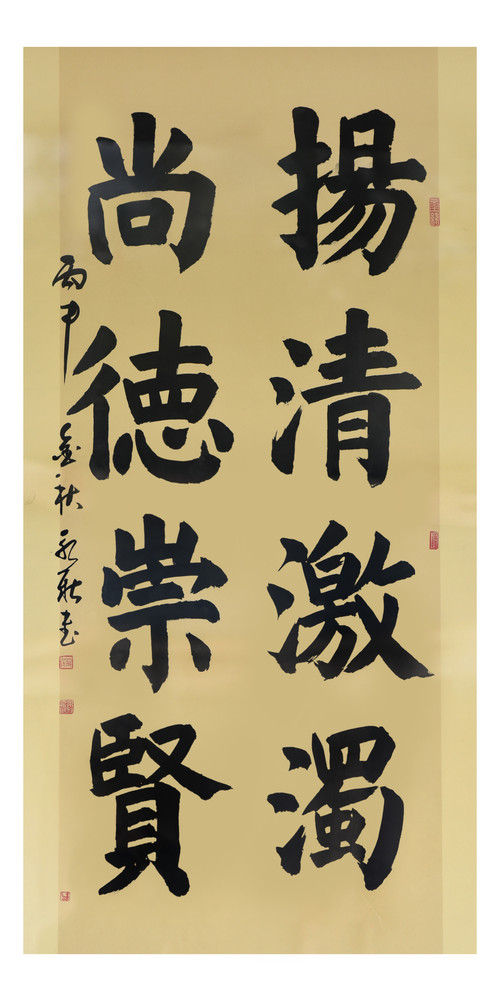 揚清激濁
尚德崇賢
丙申金秋永耿書